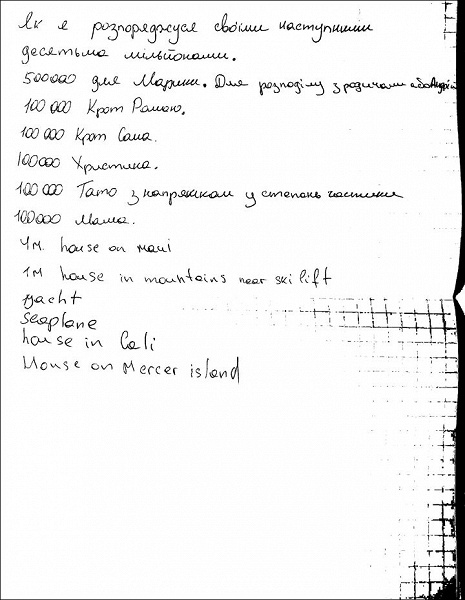 Як я розпоряджуся своїми наступними
десятьма мільйонами.
500000 для Марини. Для розподілу з родичами або Андрій
100 000 Крот Рамою.
100 000 Крот Саша.
100000 Христинка.
100 000 Тато з напряжком у степень частинки
100000 Мама.
4м. house on maui
1м house in mountains near ski lift
yacht
seaplane
house in Cali
House on Mercer island